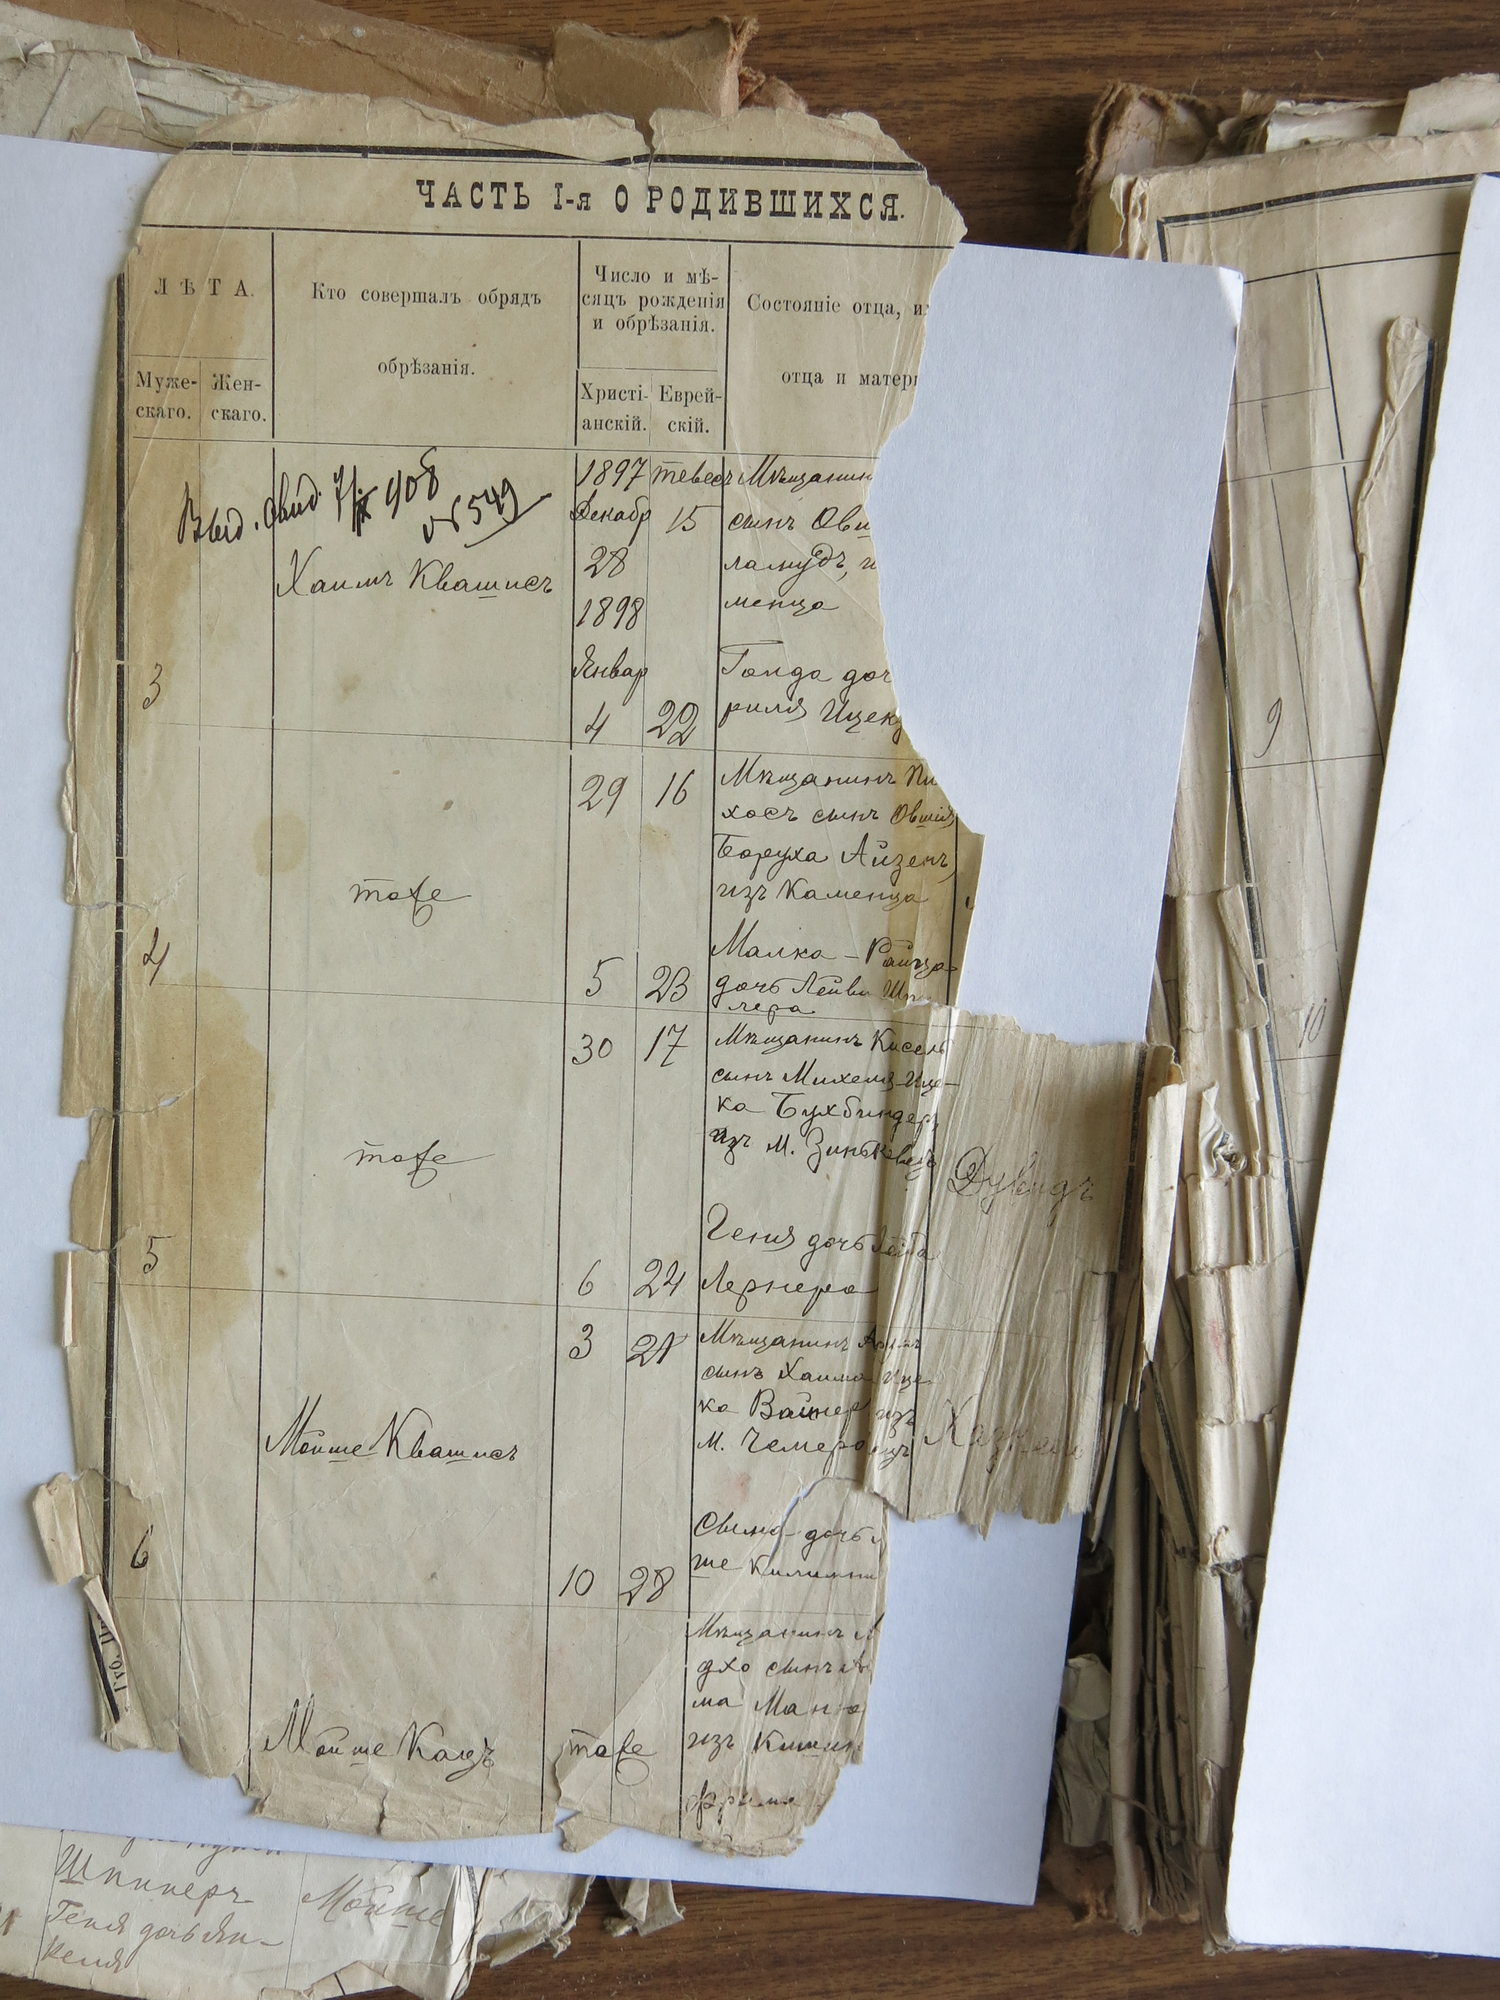 ЧАСТЬ I-я О РОДИВШИХСЯ.
ЛѢТА.
Муже-
скаго.
Жен-
скаго.
Кто совершалъ обрядъ
обрѣзанія.
Число и мѣ-
сяцъ рожденія
и обрѣзанія.
Христі-
анскій.
Еврей-
скій.
Состояніе отца, и
отца и матер
Выд. свид. 908
№ 549
3
Хаимъ Квашисъ
1897
Декабр
28
1898
Январ
4
тевесъ
15
22
Мѣщанин
сынъ Овш
ламудъ, и
менца
Голда доч
риля Ицек
4
тоже
29
16
5
23
Мѣщанинъ Пи
хосъ сынъ Овшія
Боруха Айзенъ,
изъ Каменца
Малка - Райца
дочь Лейви Шп
лера
5
тоже
30
17
6
24
Мѣщанинъ Кисель
сынъ Михеля-Ице-
ка Бухбиндеръ
изъ м. Зиньковецъ
Геня дочь Лейба
Лернера
Дувидъ
6
Мойше Квашисъ
3
21
10
28
Мѣщанинъ
сынъ Хаима Ице
ка Вайнер изъ
м. Чемеровцъ
дочь
ше Килимни
Мойше Кацъ
тоже
Мѣщанинъ
дхо сынъ
ма Маню
изъ Кишин
Фрима
9
10
Шпинеръ
Геня дочь Ян-
келя
Мойше